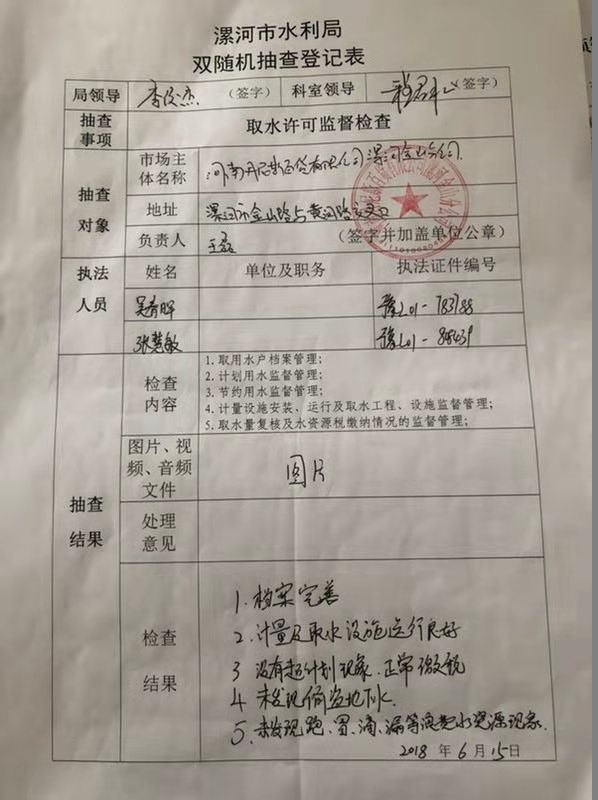 漯河市水利局
双随机抽查登记表
局领导 李俊杰 (签字) 科室领导 (签字)
抽查事项 取水许可监督检查
抽查对象
市场主体名称 河南丹尼斯百货有限公司漯河金山分公司
地址 漯河市金山路与黄河路交叉口
负责人 王磊 (签字并加盖单位公章)
执法人员 姓名 单位及职务 执法证件编号
吴春晖 豫L01-783788
张慧敏 豫L01-
抽查结果
检查内容
1.取用水户档案管理;
2.计划用水监督管理;
3.节约用水监督管理;
4.计量设施安装、运行及取水工程、设施监督管理;
5.取水量复核及水资源税缴纳情况的监督管理;
图片、视频、音频文件 图片
处理意见
检查结果
1.档案完善
2.计量及取水设施运行良好
3 没有超计划现象.正常缴税
4 未发现偷盗地下水.
5.未发现跑、冒、滴、漏等浪费水资源现象.
2018 年 6 月 15 日